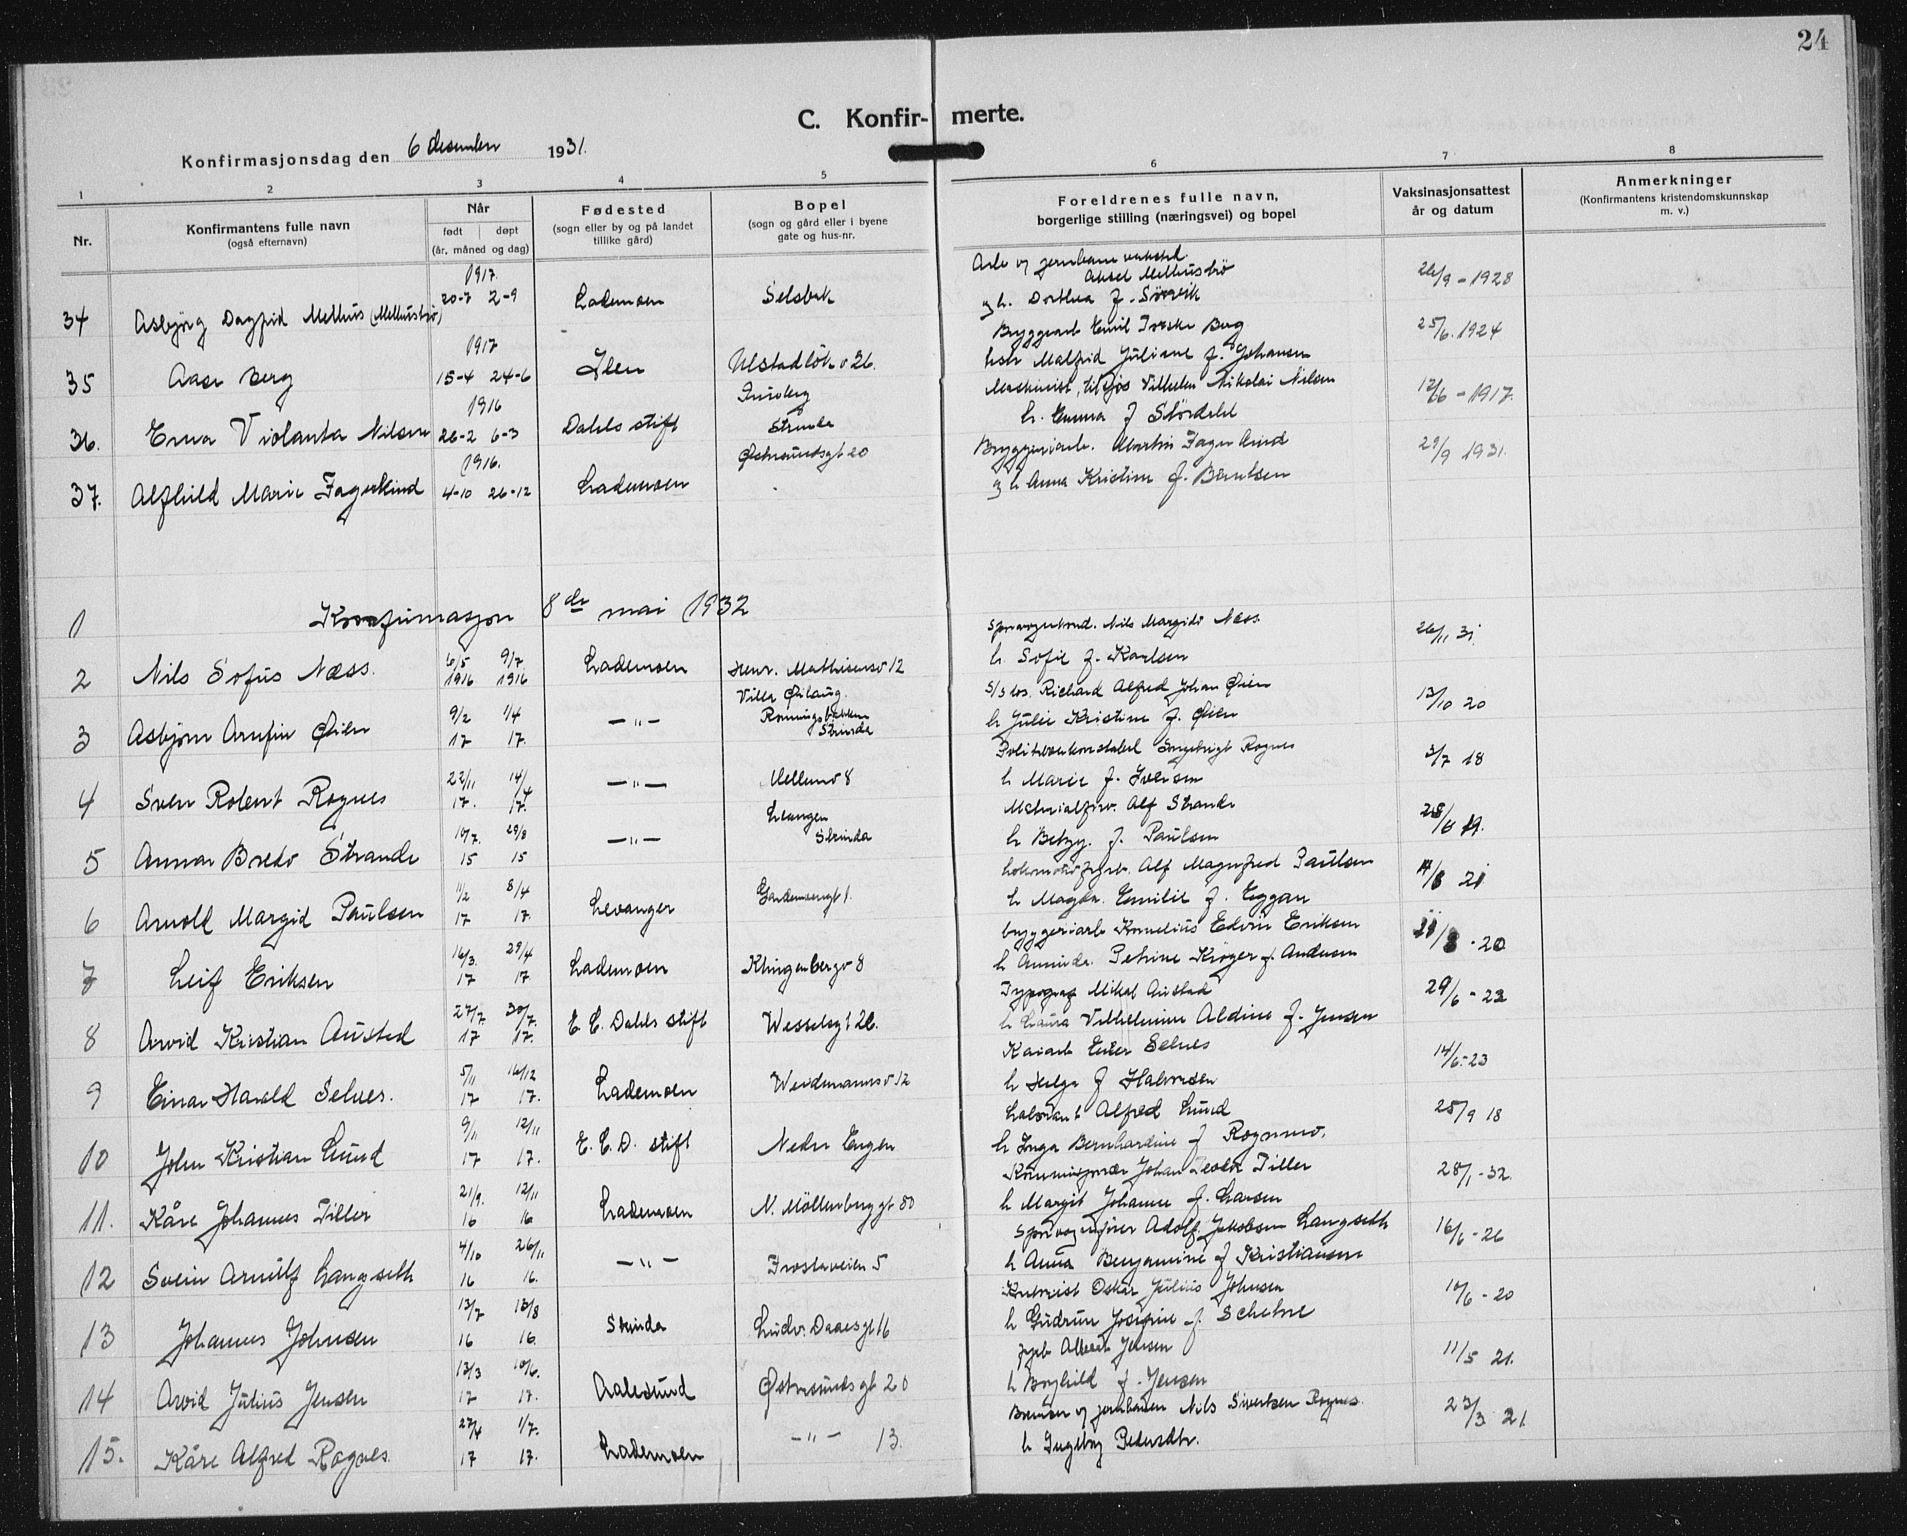 24
C. Konfir- merte.
Konfirmasjonsdag den 6 desember 1931.
1 2 3 4 5 6 7 8
Nr.
Konfirmantens fulle navn
(også efternavn)
Når
født døpt
(år, måned og dag)
Fødested
(sogn eller by og på landet
tillike gård)
Bopel
(sogn og gård eller i byene
gate og hus-nr.
Foreldrenes fulle navn,
borgerlige stilling (næringsvei) og bopel
Vaksinasjonsattest
år og datum
Anmerkninger
(Konfirmantens kristendomskunnskap
m. v.)
1917.
Arb. v jernbane
Aksel Melhusbø 26/9 - 1928
34 Asbjörg Dagfrid Melhus (Melhusbø) 20-7 2-9 Lademoen Selsbak
h. Dorthea f. Sørvik
1917
Bryggearb Emil Berg 25/6. 1924
35 Aase Berg 15-4 24-6 Ilen 26.
Malfrid Juliane f. Johansen
1916
Maskinist, Vilhelm Nikolai Nilsen 12/6 - 1917.
36. Erna Violanta Nilsen 26-2 6-3 Dahls stift Strinda
h. Emma f
1916.
Bryggeriarb. Martin Fagerlind 29/9 1931.
37. Alfhild Marie Fagerlind 4-10 26-12 Lademoen Østersundsgt 20
h Anna Kristine f. Berntsen
1 Konfirmasjon 8de mai 1932
Nils Margido Næss 26/11 31
2 Nils Sofus Næss. 6/5 1916 9/7 1916 Lademoen Henr. Mathisensv 12
h. Sofie f. Karlsen
Richard Alfred Johan Øien 13/10 20
3 Asbjørn Arnfin Øien 9/2 17 1/4 17. -"- Villa Strinda
h Julie Kristine f. Øien
Rognes 3/7 18
4 Sven Robert Rognes 22/11 17. 14/4 17. -"- Mellomv 8
h Marie f. Iversen
Alf Strande
5 Annar Bredo Strande 10/7. 15 29/8 15 -"- Leangen Strinda
h Betzy. f. Paulsen
Alf Magnfred Paulsen
6 Arnold Margid Paulsen 1/2 17 8/4 17. Levanger Gardemoengt 1.
h Magda. Emilie f. Eggan
bryggeriarb Kornelius Edvin Eriksen
7 Leif Eriksen 16/3. 17 29/4 17 Lademoen Klingenbergv 8
h Petrine Krøger f. Andersen
Typograf Mikal Austad 29/6 - 22
8 Arvid Kristian Austad 27/7. 17 30/7. 17. E. C. Dahls stift Wesselsgt 26.
h Laura Vilhelmine Aldine f. Jensen
Kaiarb Selnes 14/6 - 23
9 Einar Harald Selnes. 5/11 17 16/12 17. Lademoen Weidemannsv 12
h Helga f Halvorsen
Alfred Lund 25/9 18
10 John Kristian Lund 9/11 17 12/11 17. E. C. D. stift Nedre Engen
h Inga Bernhardine f Rognmo.
Johan Teodor Tiller 28/1 - 32.
11. Kåre Johannes Tiller 21/9. 16 12/11 16 Lademoen N. Möllenberggt 80
h Margit Johanne f. Larsen
Adolf Jakobsen Langseth 16/6 - 26
12 Svein Arnulf Langseth 4/10 16 26/11 16. -"- Frostaveien 5
h Anna Benjamine f Kristiansen
Oskar Julius Johnsen 10/6 - 20
13 Johannes Johnsen 13/7 16 13/8 16. Strinda Ludv. Daaesgt 16
h Gudrun Josefine f. Schetne
Albert Jensen 11/5 21.
14 Arvid Julius Jensen 13/3 17 10/6. 17. Aalesund Østersundsgt 20
h Borghild f. Jensen
Nils Sivertsen Rognes. 23/3 21.
15. Kåre Alfred Rognes. 27/4 17 1/7. 17. Lademoen -"- 13.
h Ingeborg Pedersdtr.